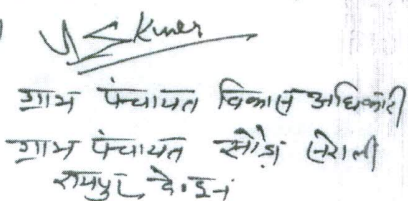 Kumar
ग्राम पंचायत विकास अधिकारी
ग्राम पंचायत सौड़ा सरोली
रायपुर दे.दून